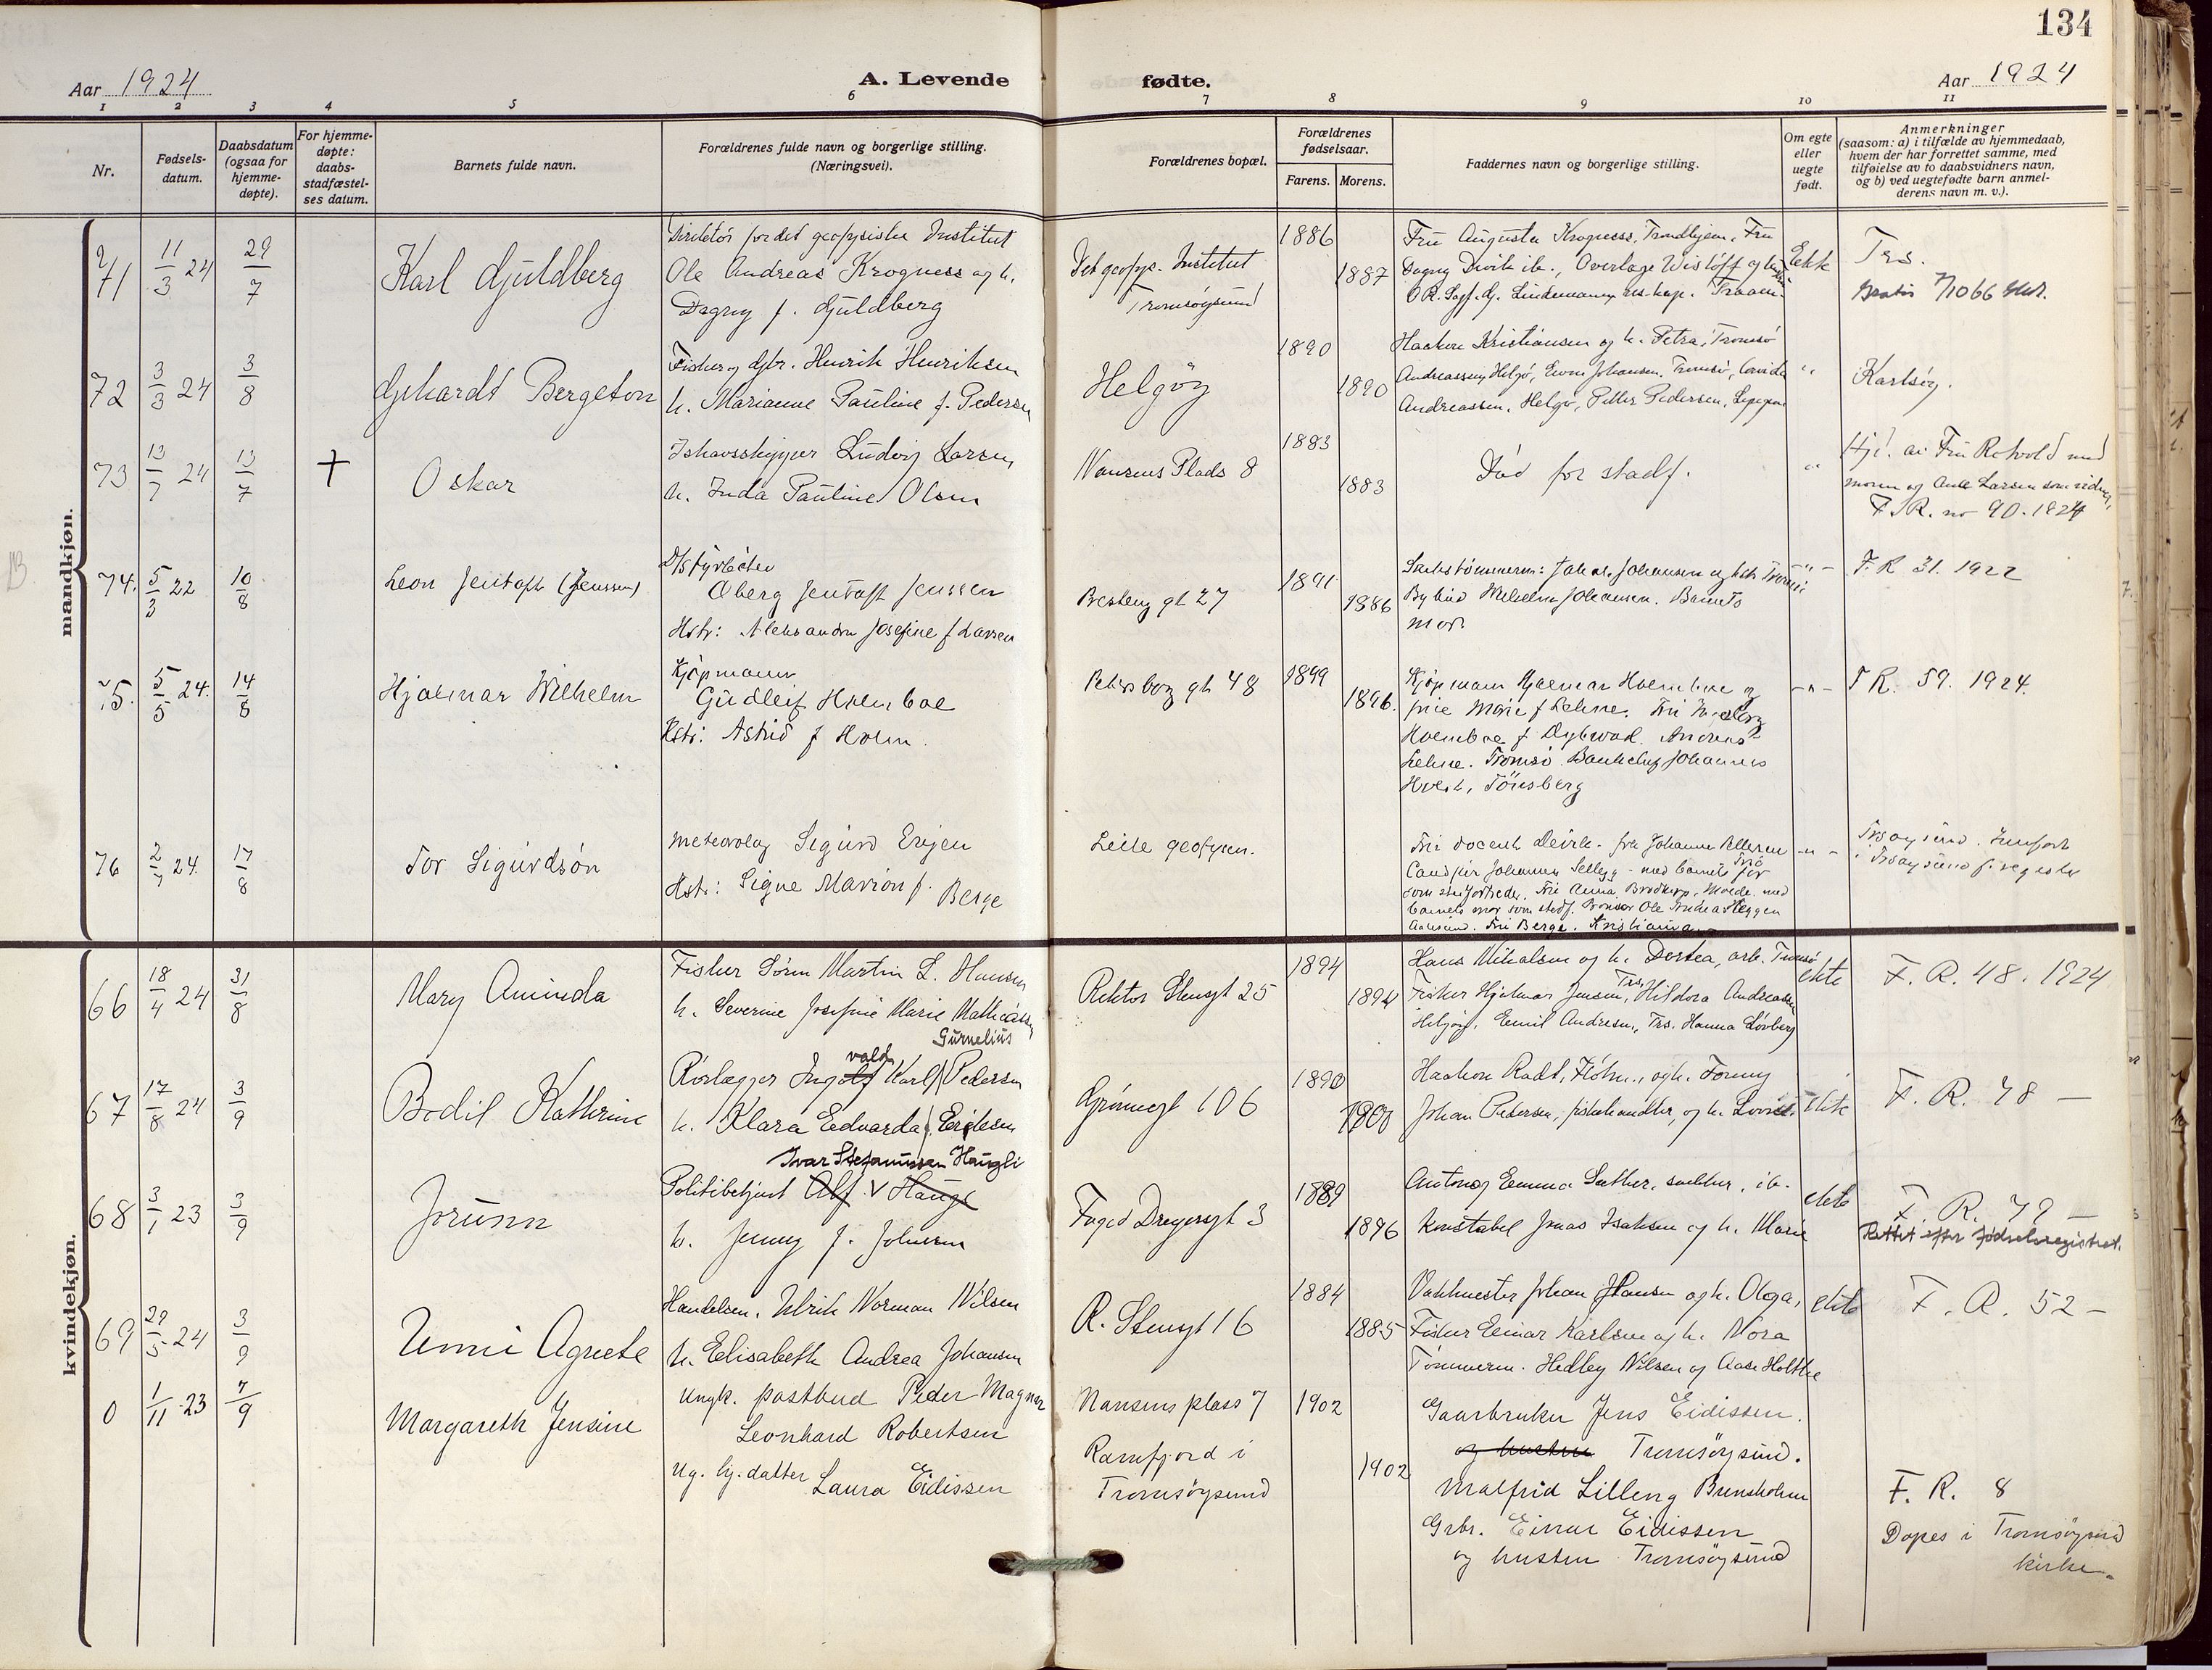 134
Aar 1924
A. Levende fødte.
Aar 1924
1 2 3 4 5 6 7 8 9 10 11
Nr.
Fødsels-
datum.
Daabsdatum
(ogsaa for
hjemme-
døpte).
For hjemme-
døpte:
daabs-
stadfæstel-
ses datum.
Barnets fulde navn.
Forældrenes fulde navn og borgerlige stilling.
(Næringsvei).
Forældrenes bopæl.
Forældrenes
fødselsaar.
Farens. Morens.
Faddernes navn og borgerlige stilling.
Om egte
eller
uegte
født.
Anmerkninger
(saasom: a) i tilfælde av hjemmedaab,
hvem der har forrettet samme, med
tilføielse av to daabsvidners navn,
og b) ved uegtefødte barn anmel-
derens navn m. v.).
mandkjøn.
71
11/3 24
29/7
Karl Gjuldberg
Direktör for det geofysiske Institut
Ole Andreas Krogness og h.
Dagny f. Gjuldberg
Det geofys. Institut
Tromsöysund
1886
1887
Fru Augusta Krogness, Trondhjem, Fru
Dagny Devik ib., Overlæge Wistöff og
Ekte
Trs.
72
3/3 24
3/8
Gjerhardt Bergeton
Fisker og gbr. Henrik Henriksen
h. Marianne Pauline f. Pedersen
Helgöy
1890
1890
Haakon Kristiansen og h. Petra, Tromsö
Andreassen, Helgö, Johansen, Tromsö,
Andreassen, Helgö, Petter Pedersen,
"
Karlsöy.
73
13/7 24
13/7
+
Oskar
Ishavsskipper Ludvig Larsen
h. Inda Pauline Olsen
Nansens Plads 8
1883
1883
Död for stadf.
"
Hjd. av Fru Rotvold med
moren og Larsen som vidner,
F.R. no 90. 1924
74.
5/3 22
10/8
Leon Jentoft (Jenssen)
Oberg Jentoft Jenssen
Hstr: Aleksandra Josefine f Larsen
gt 27
1891
1886
Johansen og hstr Tromsö
Bybud Wilhelm Johansen. Barnets
mor.
- " -
F. R 31. 1922
75.
5/5 24.
14/8
Hjalmar Wilhelm
Kjöpmann
Gudleif Holmboe
Hstr: Astrid f Holm.
Petersborg gt 48
1899
1896.
Kjöpmann Hjalmar Holmboe og
frue Marie f Lehne. Fru
Holmboe f Dybwad. Andreas
Lehne. Tromsö. Bankchef Johannes
Tönsberg
- " -
F R. 59. 1924.
76
24.
17/8
Tor Sigurdsön
Meteorolog Sigurd Evjen
Hstr: Signe Marion f. Berge
geofysen.
Fru docent Devik - frk Johanne Pettersen
- " -
kvindekjøn.
66
18/4 24
31/8
Mary Aminda
Fisker Sören Martin L. Hansen
h. Severine Josefine Marie Mathiassen
Rektor Stensgt 25
1894
1894
Hans Mikalsen og h. Dortea, arb. Tromsö
Fisker Hjalmar Jensen, Trs, Hildora Andreassen
Helgöy, Emil Andresen, Trs. Hanna Lövberg
ekte
F. R. 48. 1924
67
17/8 24
3/9
Bodil Kathrine
Gurnelius
Rörlægger Ingvald Karl Pedersen
h. Klara Edvarda f. Eriksen
Grönnegt 106
1890
1900
Haakon Radt, Flöhn., og h. Fonny
Johan Pedersen, fiskehandler, og h. Lovise
ekte
F. R. 78 —
68
3/1 23
3/9
Jorunn
Ivar Stefanussen Haugli
Politibetjent Alf V Hauge
h. Jenny f. Johnsen
Foged Dreyersgt 3
1889
1896
Anton og Emma Sæther, snekker, ib.
Konstabel Jonas Isaksen og h. Marie
ekte
F. R. 79 —
Rettet efter fødselsregistret.
69
29/5 24
3/9
Unni Agnete
Handelsm. Ulrik Norman Nilsen
h. Elisabeth Andrea Johansen
R. Stensgt 16
1884
1885
Vaktmester Johan Hansen og h. Olga,
Fisker Einar Karlsen og h. Nora
Tömmerm. Hedley Nilsen og Aase Holthe
ekte
F. R. 52 —
0
1/11 23
7/9
Margareth Jensine
Ungk. postbud Peder Magnus
Leonhard Robertsen
Ug. bj. datter Laura Eidissen
Nansens plass 7
Ramfjord i
Tromsöysund
1902
1902
Gaarbruker Jens Eidissen.
og hustru Tromsöysund.
Malfrid Lilleng Brensholmen
Grbr. Einar Eidissen
og hustru Tromsöysund
F. R. 8
Döpes i Tromsöysund
kirke.